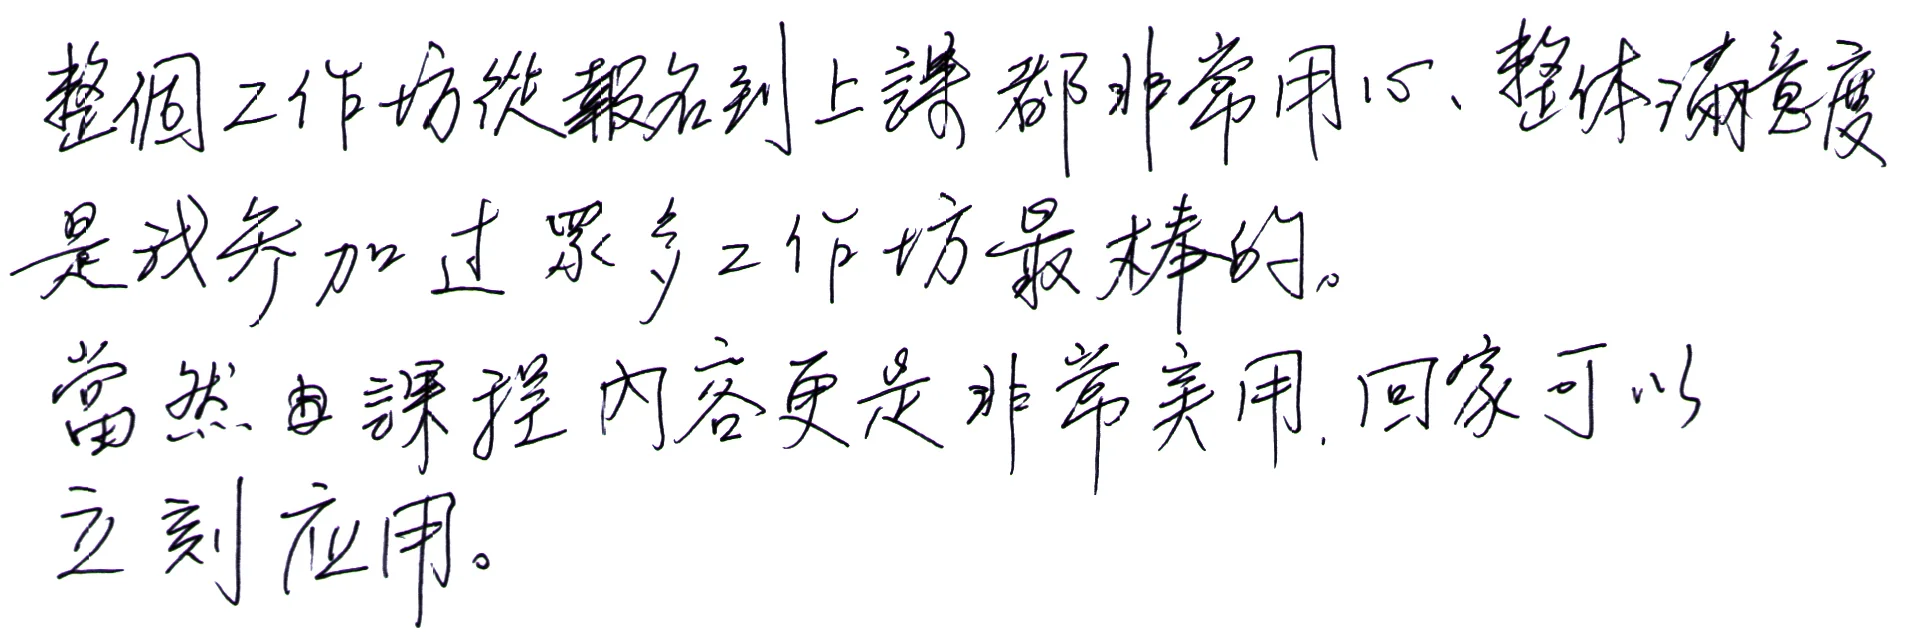 整個工作坊從報名到上課都非常用心、整体滿意度
是我参加过眾多工作坊最棒的。
當然由課程內容更是非常实用.回家可以
立刻应用。